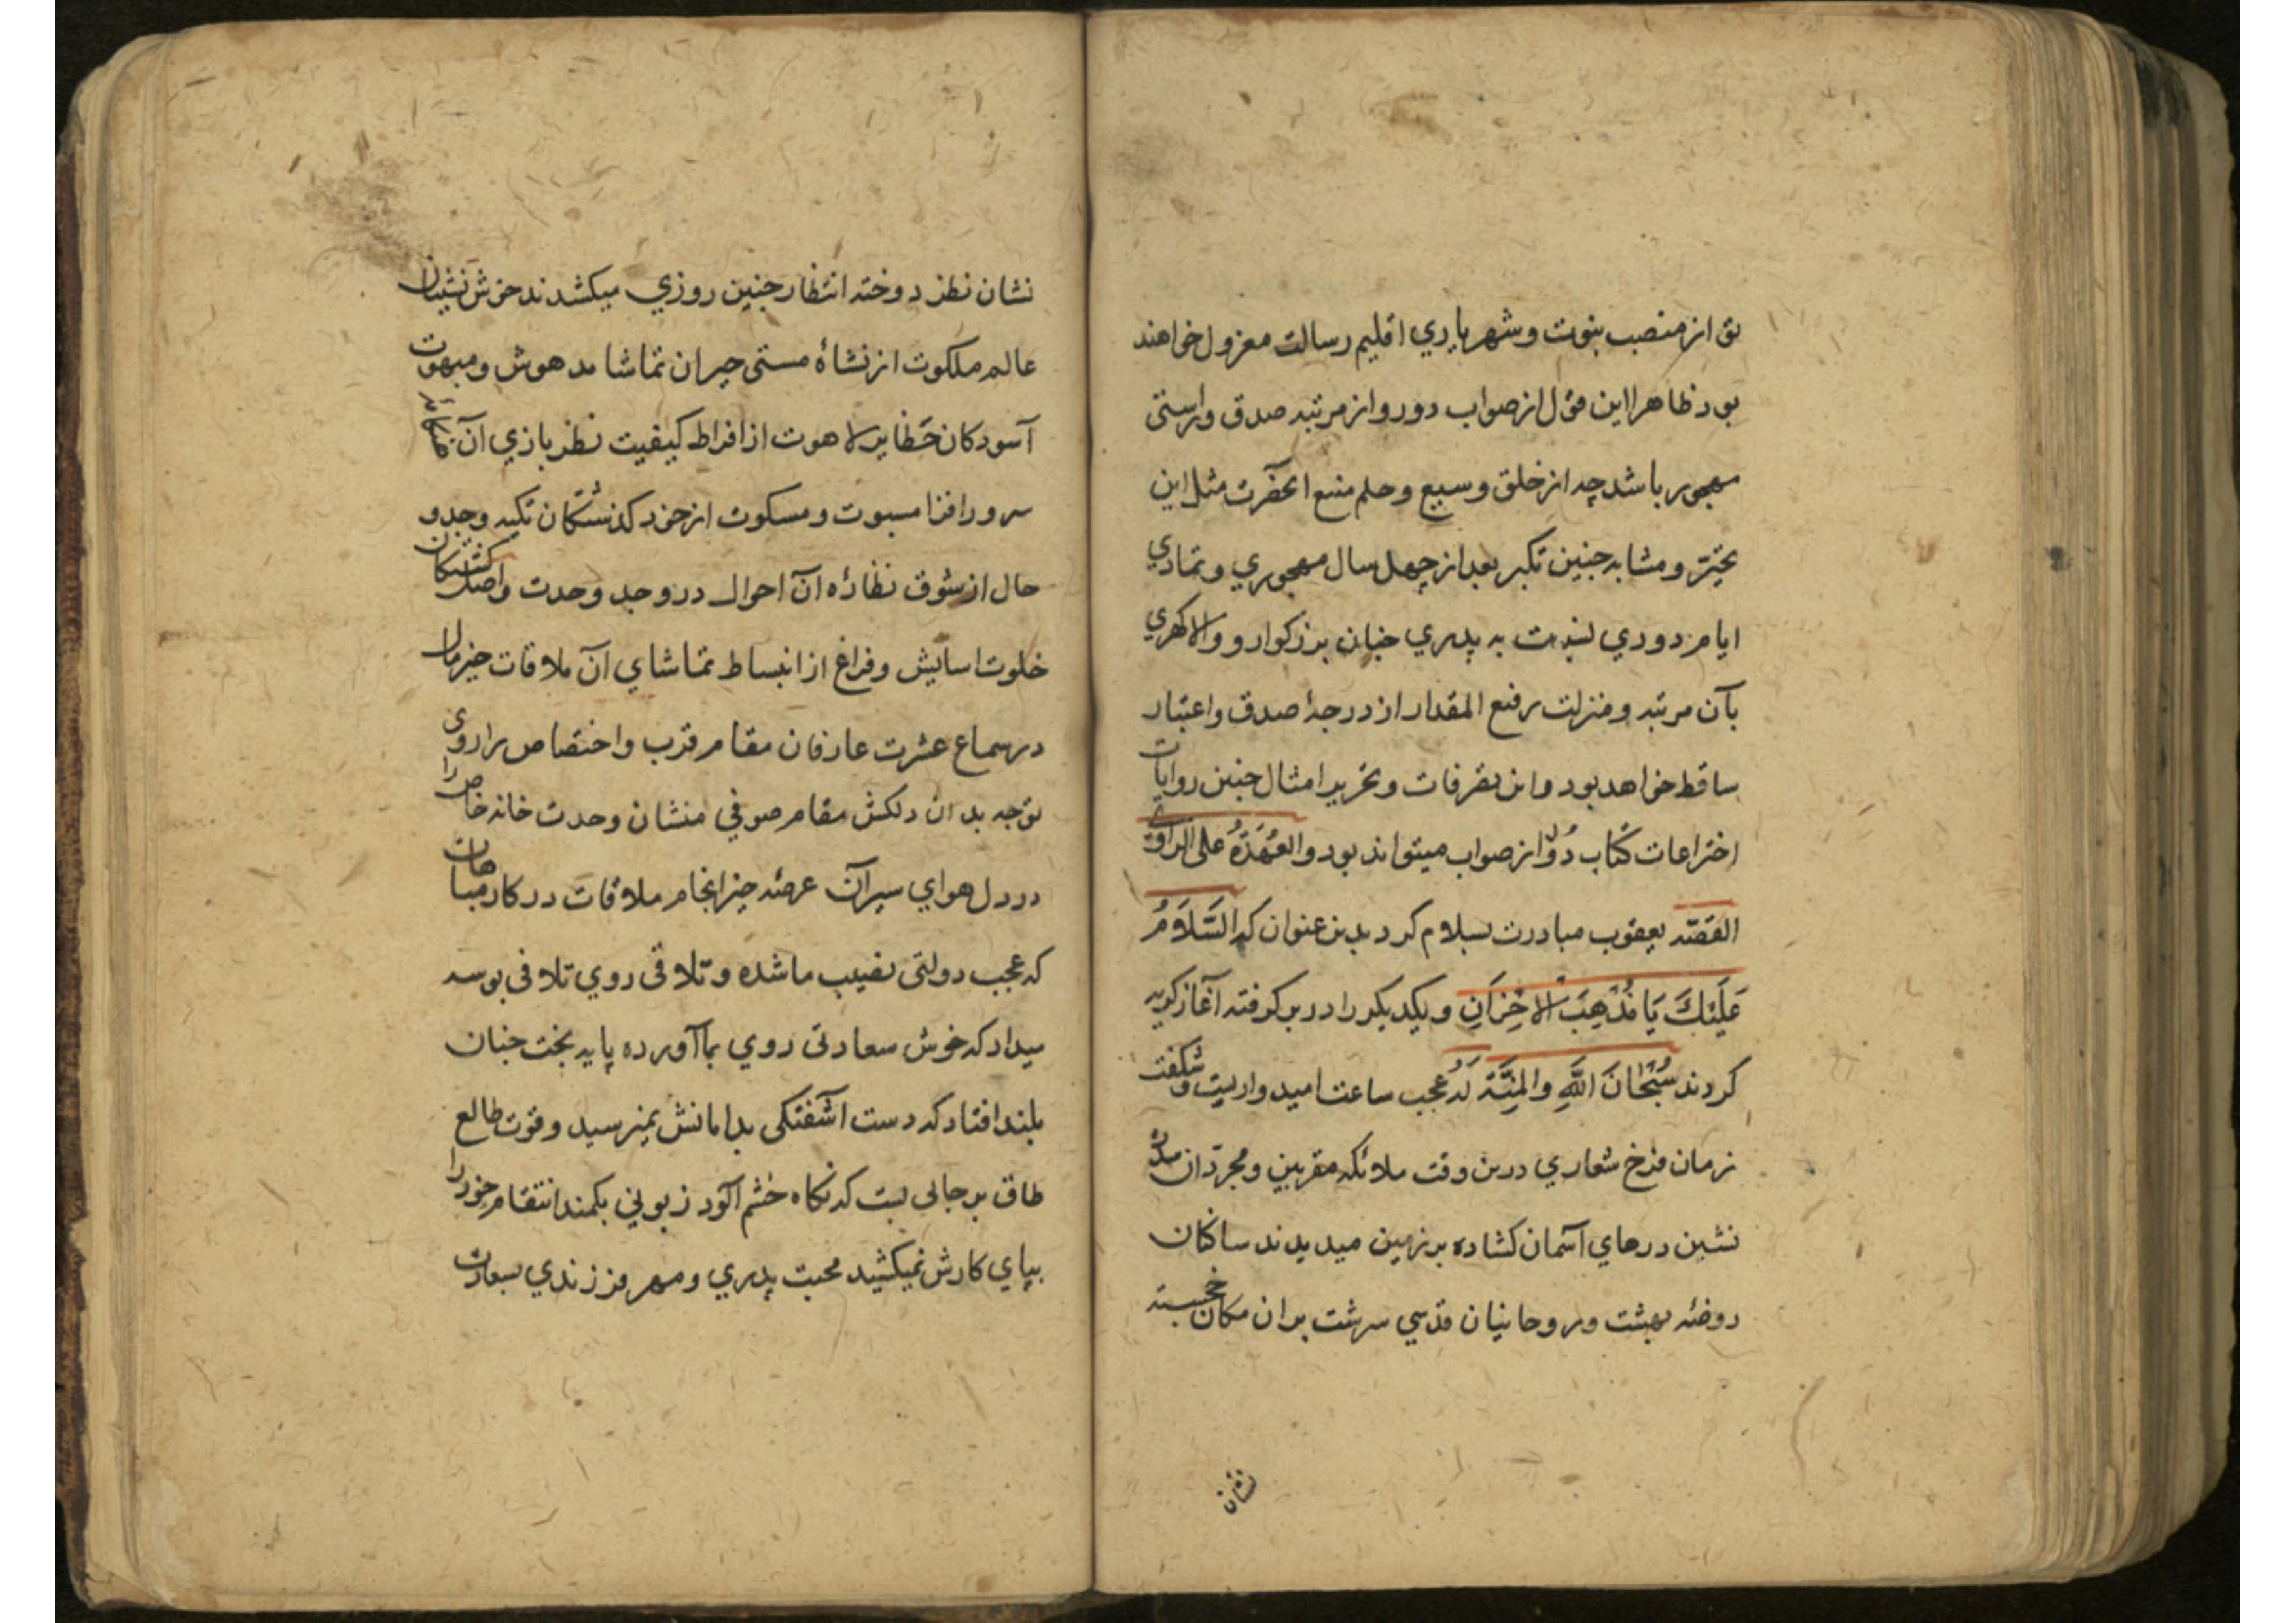 تو از منصب بنوت و شهریاري اقلیم رسالت معزول خواهند
بود ظاهرا این قول از صواب دور و از مرتبه صدق و راستی
مهجور باشد چه از خلق وسیع و حلم منبع آنحضرت مثل این
تحیّز و مشابه چنین تکبر بعد از چهل سال مهجوري و تمادي
ایام دوري نسبت به پدري چنان بزرکوار و والا کهري
بآن مرتبه و منزلت رفیع المقدار از درجهٔ صدق و اعتبار
ساقط خواهد بود و این تصرفات و تحریر امثال چنین روایات
اختراعات کتاب دُوْر از صواب میتواند بود والعُهْدَةُ علی الراوي
القصّه یعقوب مبادرت بسلام کرد بدین عنوان که السَّلَامُ
عَلَيْكَ يَا مُذْهِبَ الاَحْزَانِ و یکدیکر را در بر کرفته آغاز کریه
کردند سُبْحَانَ اللَّهِ والمِنَّةُ لَهُ عجب ساعت امید واریست و شکفت
زمان فرخ شعاري درین وقت ملائکه مقربین و مجرّدان سدره
نشین درهاي آسمان کشاده بر زمین میدیدند ساکنان
روضهٔ بهشت و روحانیان قدسي سرشت بران مکان خجسته
نشان
نشان نظر دوخته انتظار چنین روزي میکشدند خوش نشینان
عالم ملکوت از نشاهٔ مستی حیران تماشا مدهوش و مبهوت
آسودکان حَظایر لاهوت از افراط کیفیت نظر بازي آن
سرور افزا مسبوت و مسکوت از خود کذشتکان تکیه وجد و
حال از شوق نظارهٔ آن احوال در وجد وحدت و اصل کشتکان
خلوت اسایش و فراغ از انبساط تماشاي آن ملاقات خیر مآل
در سماع عشرت عارفان مقام قرب و اختصاص را روي
توجه بدان دلکش مقام صوفي منشان وحدت خانه خاص را
در دل هواي سیر آن عرصهٔ خیر انجام ملاقات در کار مباهات
که عجب دولتی نصیب ما شده و تلاقی روي تلافی بوسه
میداد که خوش سعادتی روي بما آورده پایه بخت چنان
بلند افتاد که دست آشفتکی بدامانش نمیرسید و قوت طالع
طاق بر جالی بست که نکاه خشم آلود زبوني بکمند انتقام خود را
بپاي کارش نمیکشید محبت پدري و مهر فرزندي بسعادت